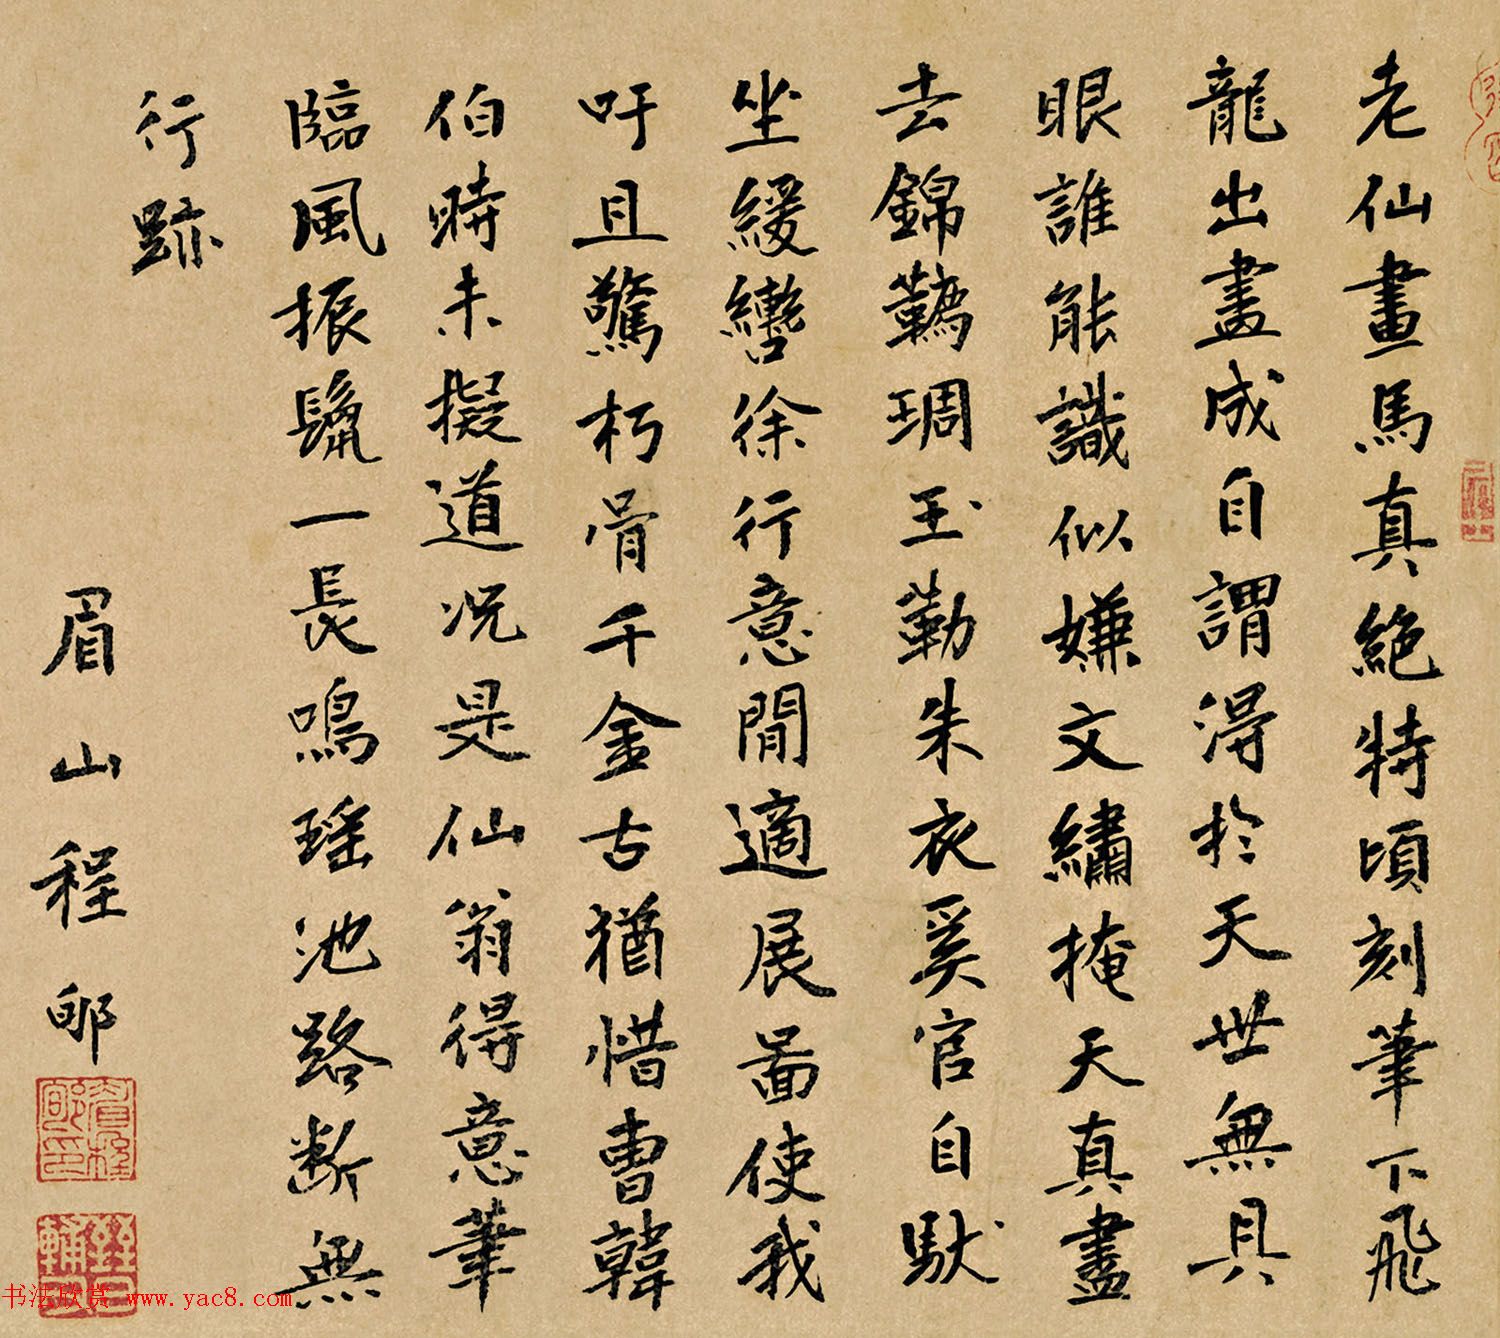 老仙畫馬真絶特頃刻筆下飛
龍出畫成自謂得於天世無具
眼誰能識似嫌文繡掩天真盡
去錦韉琱玉勒朱衣奚官自馱
坐緩轡徐行意閒適展啚使我
吁且驚朽骨千金古猶惜曹韓
伯時未擬道况是仙翁得意筆
臨風振鬛一長鳴瑶池路斷無
行跡
眉山程郇
书法欣赏 www.yac8.com